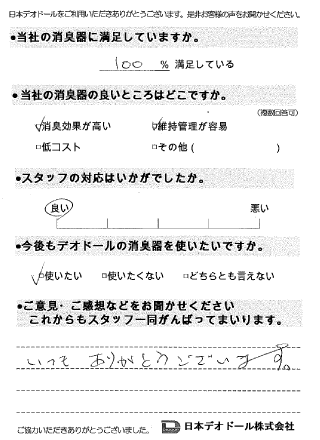 日本デオドールをご利用いただきありがとうございます。是非お客様の声をお聞かせください。
●当社の消臭器に満足していますか。
100 % 満足している
●当社の消臭器の良いところはどこですか。
(複数回答可)
☑消臭効果が高い ☑維持管理が容易
□低コスト □その他( )
●スタッフの対応はいかがでしたか。
良い 悪い
●今後もデオドールの消臭器を使いたいですか。
☑使いたい □使いたくない □どちらとも言えない
●ご意見・ご感想などをお聞かせください
これからもスタッフ一同がんばってまいります。
いつも ありがとうございます。
ご協力いただきありがとうございました。 日本デオドール株式会社